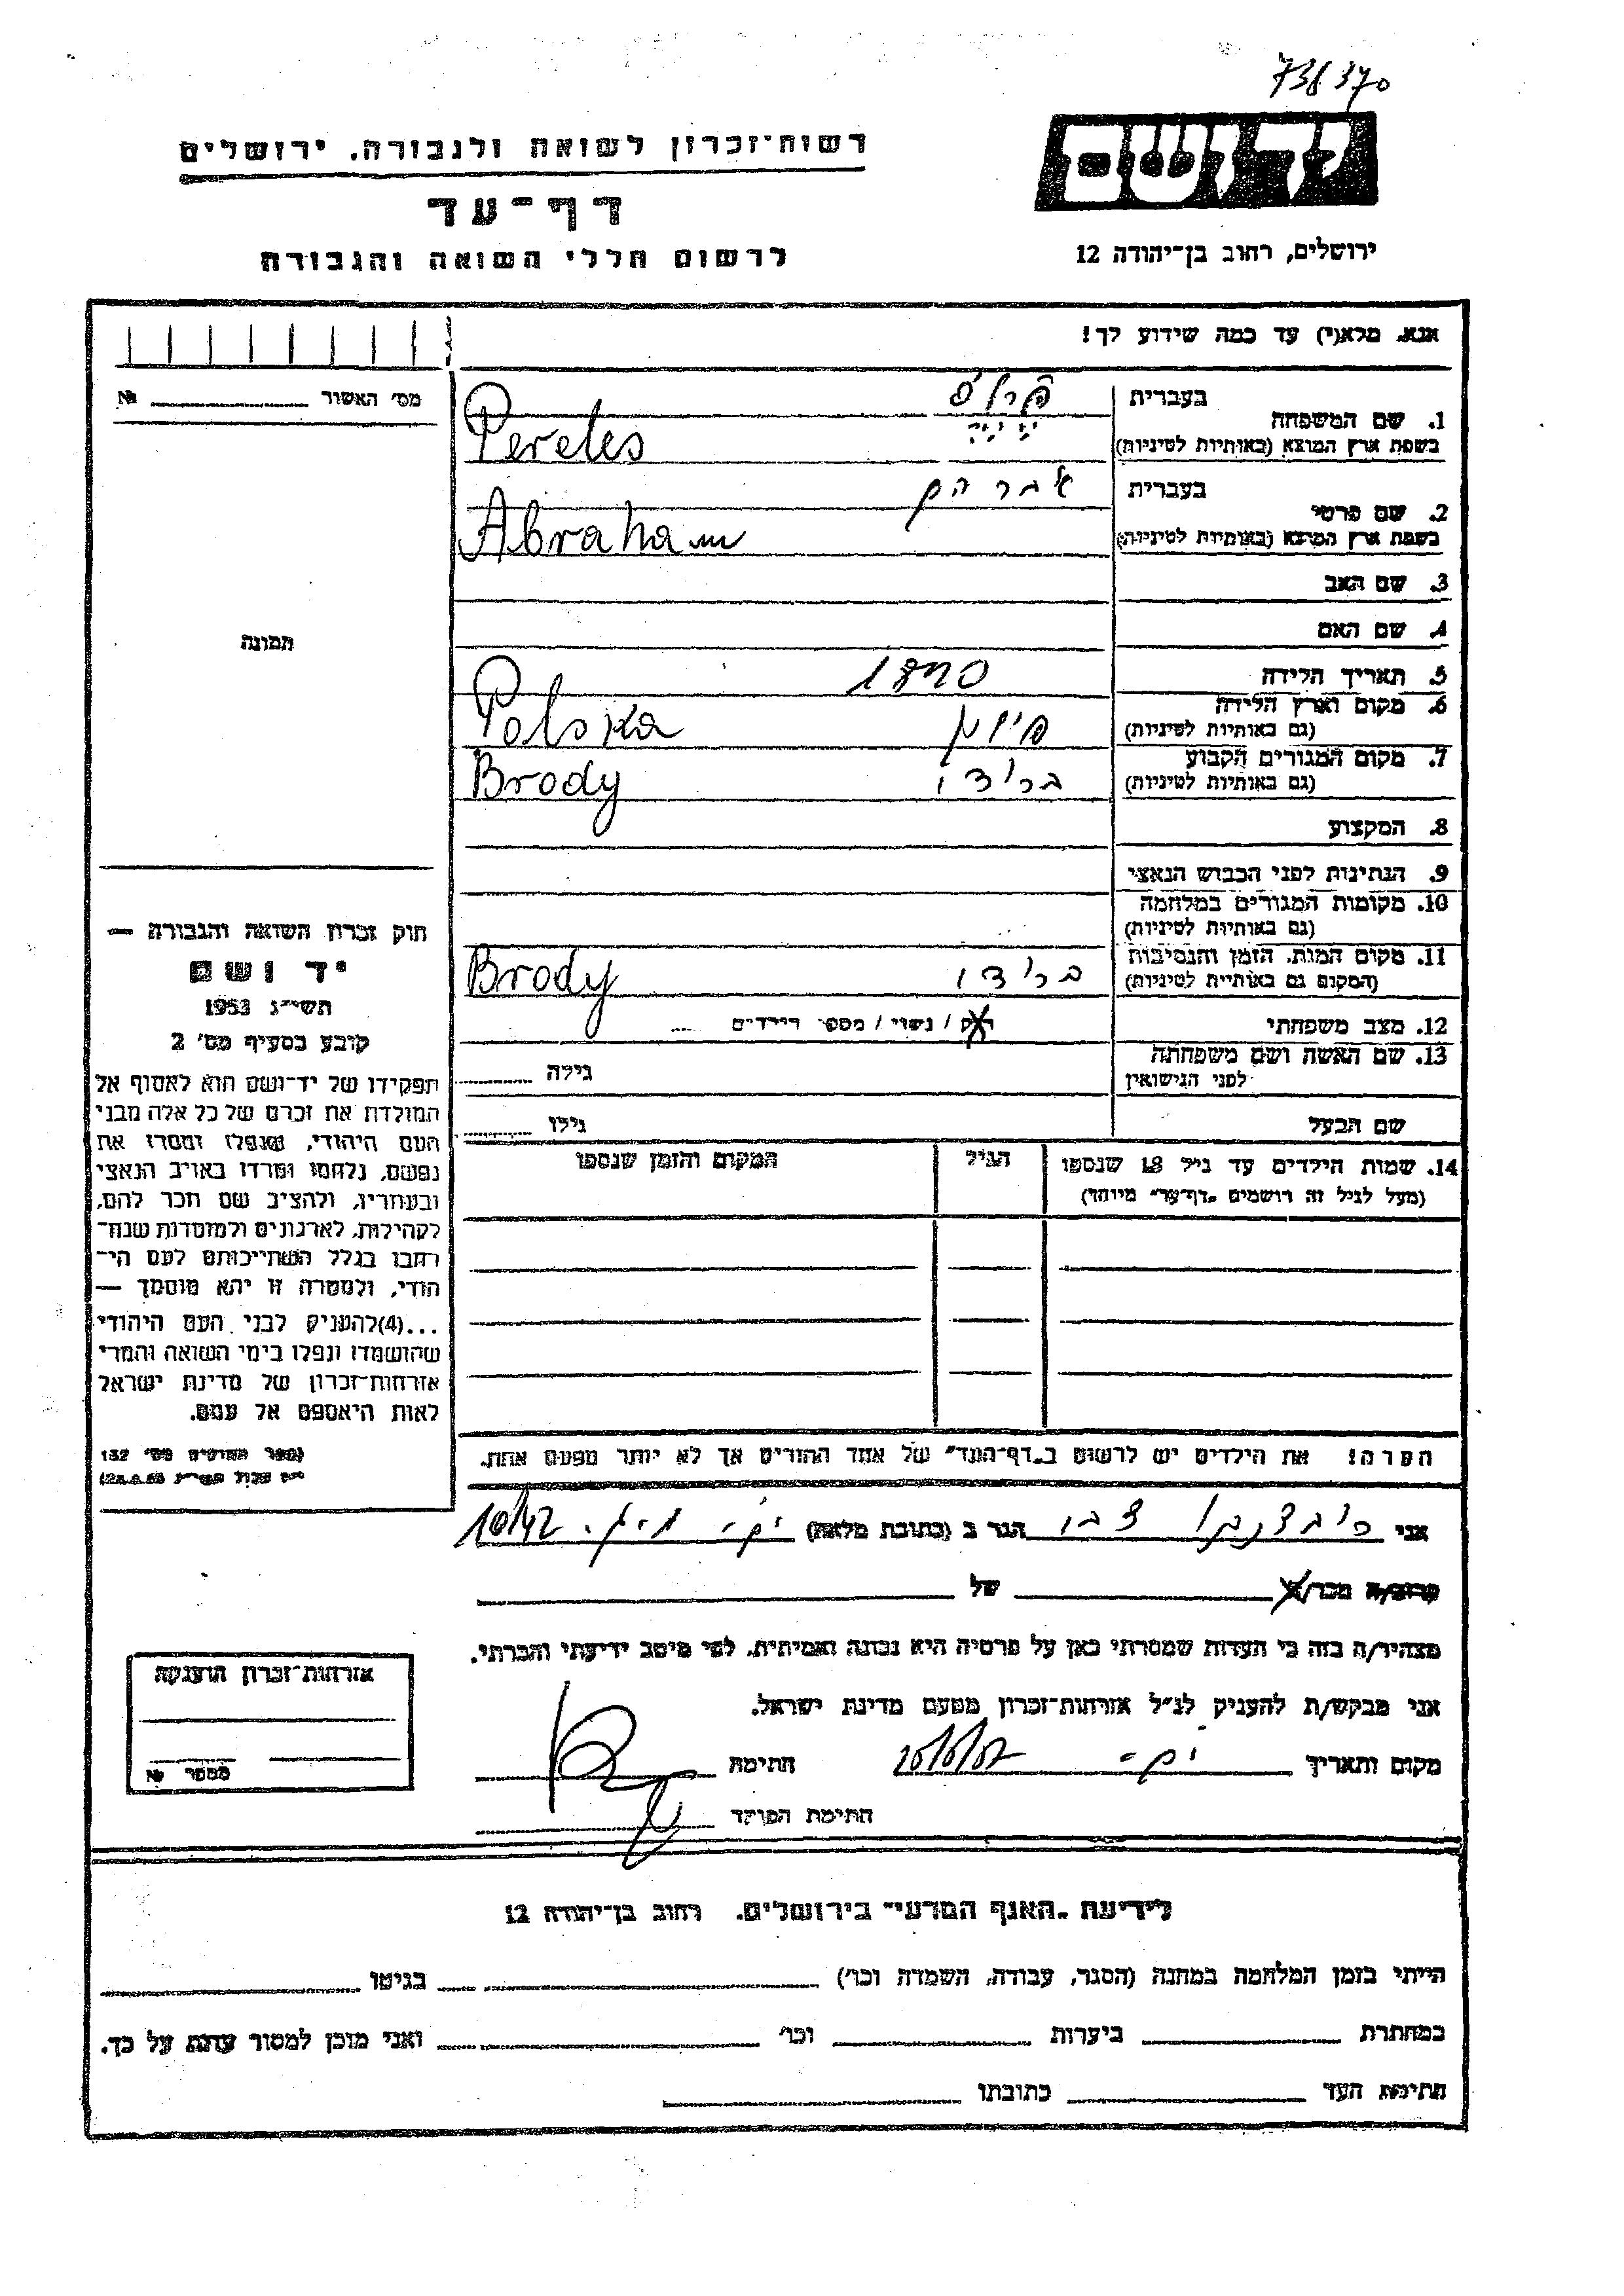 738370
רשות־זכרון לשואה ולגבורה, ירושלים
יד ושם
דף־עד
לרשום חללי השואה והגבורה
ירושלים, רחוב בן־יהודה 12
אנא, מלא(י) עד כמה שידוע לך!
מס׳ האשור № 
1. שם המשפחה
בעברית
בשפת ארץ המוצא (באותיות לטיניות)
Pereles
2. שם פרטי
בעברית אברהם
בשפת ארץ המוצא (באותיות לטיניות)
Abraham
3. שם האב
4. שם האם
תמונה
5. תאריך הלידה 1890
6. מקום וארץ הלידה
(גם באותיות לטיניות)
פולין Polska
7. מקום המגורים הקבוע
(גם באותיות לטיניות)
ברודי Brody
8. המקצוע
9. הנתינות לפני הכבוש הנאצי
10. מקומות המגורים במלחמה
(גם באותיות לטיניות)
11. מקום המות, הזמן והנסיבות
(המקום גם באותיות לטיניות)
ברודי Brody
12. מצב משפחתי רוק / נשוי / מספר הילדים
13. שם האשה ושם משפחתה
לפני הנישואין גילה
שם הבעל גילו
14. שמות הילדים עד גיל 18 שנספו הגיל המקום והזמן שנספו
(מעל לגיל זה רושמים „דף־עד״ מיוחד)
חוק זכרון השואה והגבורה —
יד ושם
תשי״ג 1953
קובע בסעיף מס׳ 2
תפקידו של יד־ושם הוא לאסוף אל
המולדת את זכרם של כל אלה מבני
העם היהודי, שנפלו ומסרו את
נפשם, נלחמו ומרדו באויב הנאצי
ובעוזריו, ולהציב שם וזכר להם,
לקהילות, לארגונים ולמוסדות שנח־
רבו בגלל השתייכותם לעם הי־
הודי, ולמטרה זו יהא מוסמך —
...(4)להעניק לבני העם היהודי
שהושמדו ונפלו בימי השואה והמרי
אזרחות־זכרון של מדינת ישראל
לאות היאספם אל עמם.
(ספר החוקים מס׳ 132
הערה! את הילדים יש לרשום ב„דף־העד״ של אחד ההורים אך לא יותר מפעם אחת.
אני צבי הגר ב (כתובת מלאה) 10/42
קרוב/ה מכר/ה של
מצהיר/ה בזה כי העדות שמסרתי כאן על פרטיה היא נכונה ואמיתית, לפי מיטב ידיעתי והכרתי.
אני מבקש/ת להעניק לנ״ל אזרחות־זכרון מטעם מדינת ישראל.
מקום ותאריך חתימה
חתימת הפוקד
אזרחות־זכרון הוענקה
מספר №
לידיעת „האגף המדעי״ בירושלים, רחוב בן־יהודה 12
הייתי בזמן המלחמה במחנה (הסגר, עבודה, השמדה וכו׳) בגיטו
במחתרת ביערות וכו׳ ואני מוכן למסור עדות על כך.
חתימת העד כתובתו